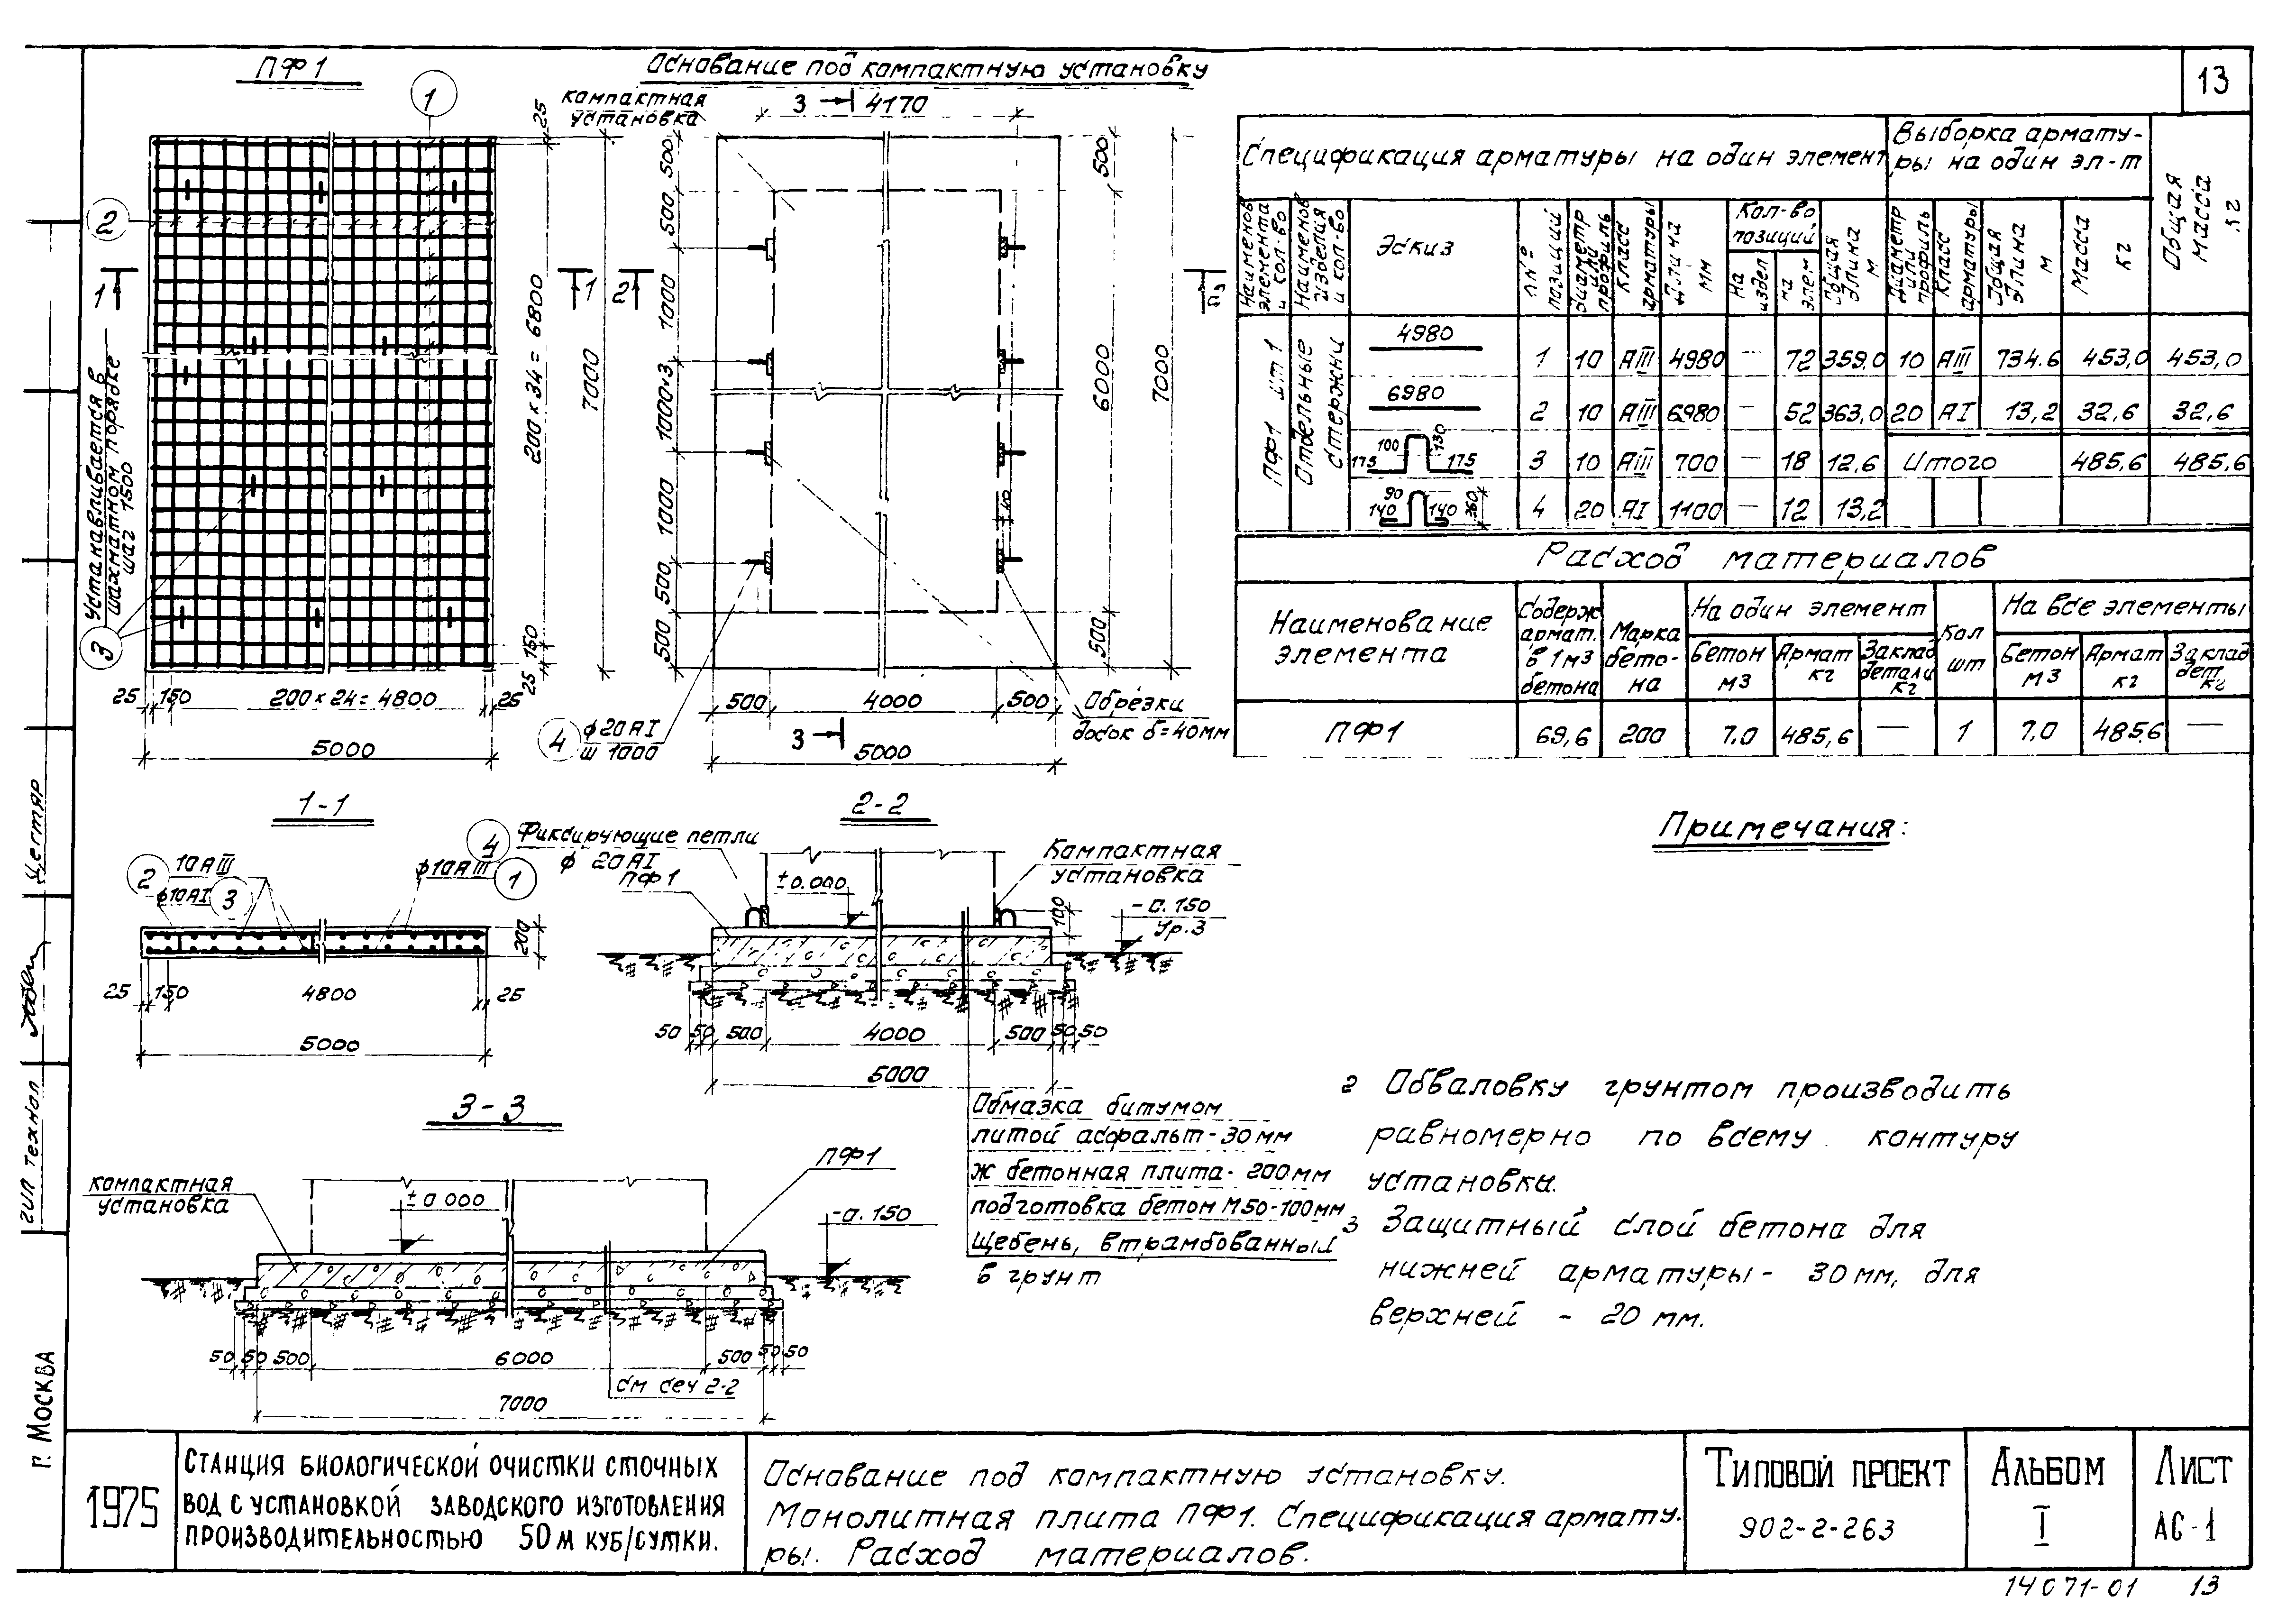 13
ПФ1
Основание под компактную установку
1
2
3
компактная
установка
3
4170
25
200 × 34 = 6800
7000
150
25
1
1
2
2
Устанавливается в
шахматном порядке
шаг 1500
25
150
200 × 24 = 4800
25
5000
500
500
1000
1000×3
1000
500
500
500
6000
7000
500
40
500
4000
500
5000
4
ф20АI
ш 1000
3
Обрезки
досок б=40мм
Спецификация арматуры на один элемент
Выборка армату-
ры на один эл-т
Общая масса кг
Наименов элемента и кол-во
Наименов изделия и кол-во
Эскиз
№№ позиций
Диаметр или профиль
Класс арматуры
Длина мм
Кол-во позиций
На издел
на элем
Общая длина м
Диаметр или профиль
Класс арматуры
Общая длина м
Масса кг
ПФ1 шт 1
Отдельные стержни
4980
1 10 АIII 4980 — 72 359,0 10 АIII 734.6 453,0 453,0
6980
2 10 АIII 6980 — 52 363,0 20 АI 13,2 32,6 32,6
175 100 130 175
3 10 АIII 700 — 18 12,6 Итого 485,6 485,6
140 90 140 260
4 20 АI 1100 — 12 13,2
Расход материалов
Наименование
элемента
Содерж
армат.
в 1м3
бетона
Марка
бето-
на
На один элемент
Бетон
м3
Армат
кг
Заклад
детали
кг
Кол
шт
На все элементы
Бетон
м3
Армат
кг
Заклад
дет.
кг
ПФ1 69,6 200 7.0 485,6 — 1 7.0 485.6 —
1-1
2
10 АIII
ф10АI
3
ф10АIII
1
200
25
150
4800
25
5000
2-2
4
Фиксирующие петли
ф 20АI
ПФ1
±0.000
Компактная
установка
100
-0.150
Ур.З
50
50
500
4000
500
50
50
5000
Обмазка битумом
литой асфальт-30мм
ж бетонная плита- 200мм
подготовка бетон М50-100мм
щебень, втрамбованный
в грунт
3-3
компактная
установка
±0.000
ПФ1
-0.150
50
50
500
6000
500
50
50
см сеч 2-2
7000
Примечания:
2 Обваловку грунтом производить
равномерно по всему контуру
установки.
3 Защитный слой бетона для
нижней арматуры- 30мм, для
верхней - 20 мм.
ГИП технол
Г. Москва
1975
Станция биологической очистки сточных
вод с установкой заводского изготовления
производительностью 50м куб/сутки.
Основание под компактную установку.
Монолитная плита ПФ1. Спецификация армату-
ры. Расход материалов.
Типовой проект
902-2-263
Альбом
I
Лист
АС-1
14071-01
13